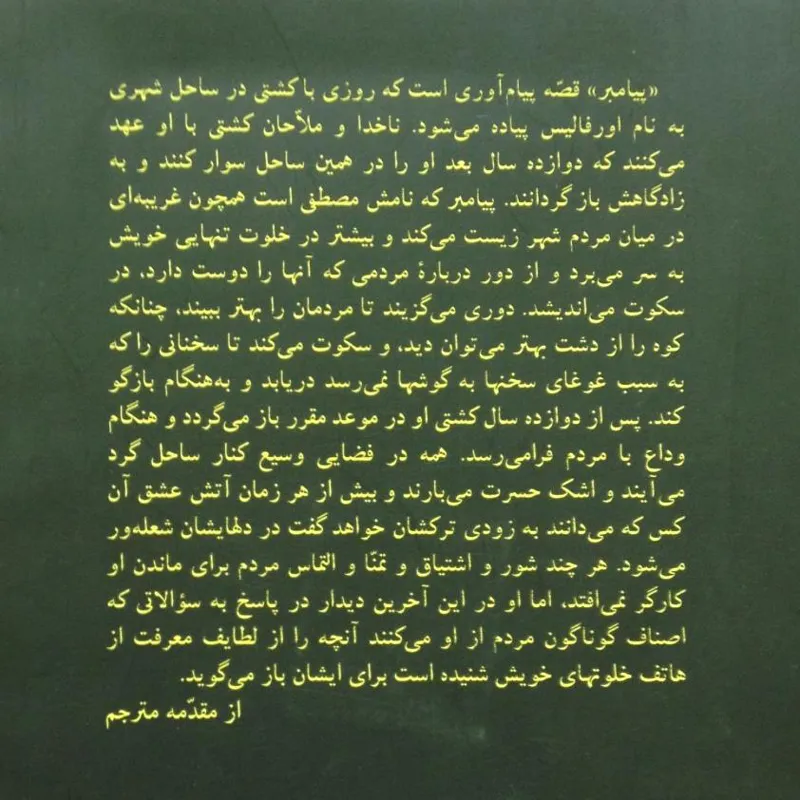 «پیامبر» قصّه پیام‌آوری است که روزی با کشتی در ساحل شهری
به نام اورفالیس پیاده می‌شود. ناخدا و ملاّحان کشتی با او عهد
می‌کنند که دوازده سال بعد او را در همین ساحل سوار کنند و به
زادگاهش باز گردانند. پیامبر که نامش مصطفی است همچون غریبه‌ای
در میان مردم شهر زیست می‌کند و بیشتر در خلوت تنهایی خویش
به سر می‌برد و از دور دربارهٔ مردمی که آنها را دوست دارد، در
سکوت می‌اندیشد. دوری می‌گزیند تا مردمان را بهتر ببیند، چنانکه
کوه را از دشت بهتر می‌توان دید، و سکوت می‌کند تا سخنانی را که
به سبب غوغای سخنها به گوشها نمی‌رسد دریابد و به‌هنگام بازگو
کند. پس از دوازده سال کشتی او در موعد مقرر باز می‌گردد و هنگام
وداع با مردم فرامی‌رسد. همه در فضایی وسیع کنار ساحل گرد
می‌آیند و اشک حسرت می‌بارند و بیش از هر زمان آتش عشق آن
کس که می‌دانند به زودی ترکشان خواهد گفت در دلهایشان شعله‌ور
می‌شود. هر چند شور و اشتیاق و تمنّا و التماس مردم برای ماندن او
کارگر نمی‌افتد، اما او در این آخرین دیدار در پاسخ به سؤالاتی که
اصناف گوناگون مردم از او می‌کنند آنچه را از لطایف معرفت از
هاتف خلوتهای خویش شنیده است برای ایشان باز می‌گوید.
از مقدّمه مترجم